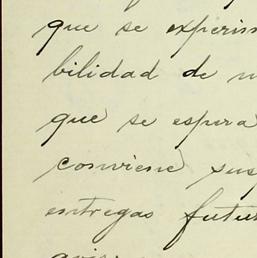 que se experim
bilidad de
que se espera
conviene sus
entregas futu